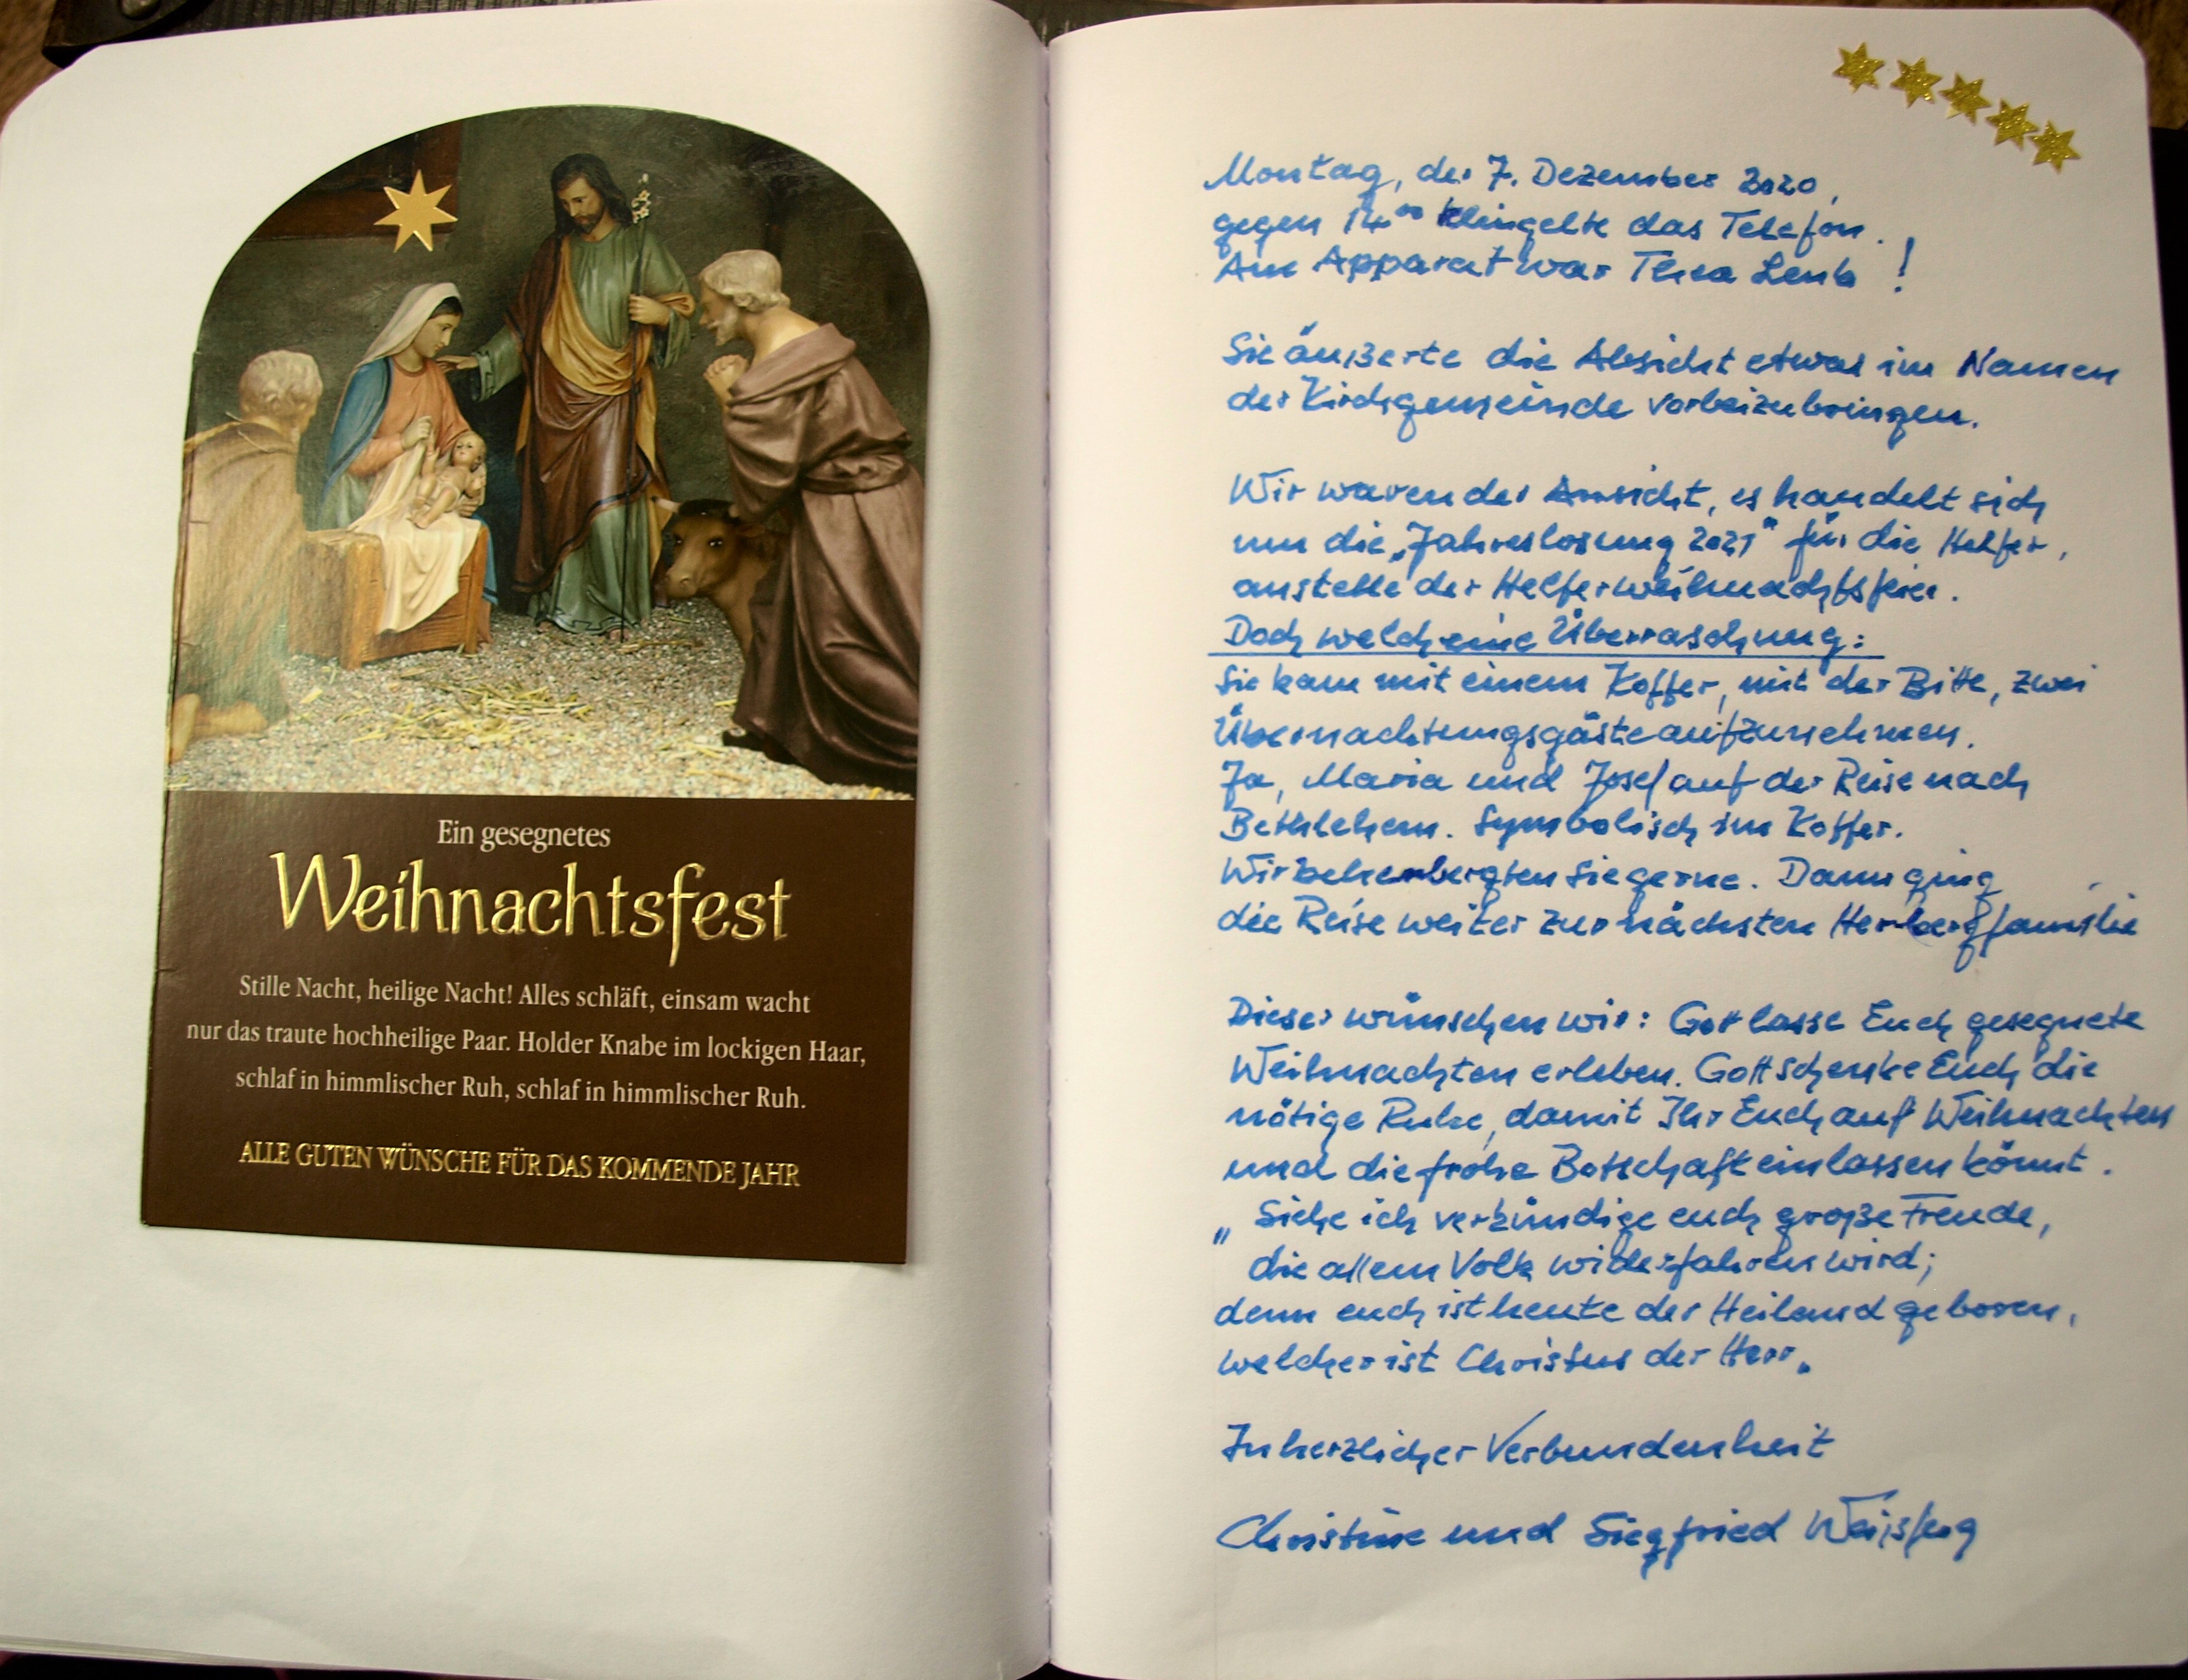 Ein gesegnetes
Weihnachtsfest
Stille Nacht, heilige Nacht! Alles schläft, einsam wacht
nur das traute hochheilige Paar. Holder Knabe im lockigen Haar,
schlaf in himmlischer Ruh, schlaf in himmlischer Ruh.
ALLE GUTEN WÜNSCHE FÜR DAS KOMMENDE JAHR
Montag, der 7. Dezember 2020,
gegen 14⁰⁰ klingelte das Telefon.
Am Apparat war Thea !
Sie äußerte die Absicht etwas im Namen
der Kirchgemeinde vorbeizubringen.
Wir waren der Ansicht, es handelt sich
um die „Jahreslosung 2021" für die Helfer,
anstelle der Helferweihnachtsfeier.
Doch welch eine Überraschung:
Sie kam mit einem Koffer, mit der Bitte, zwei
Übernachtungsgäste aufzunehmen.
Ja, Maria und Josef auf der Reise nach
Bethlehem. Symbolisch im Koffer.
Wir beherbergten Sie gerne. Dann ging
die Reise weiter zur nächsten Herbergfamilie
Dieser wünschen wir: Gott lasse Euch gesegnete
Weihnachten erleben. Gott schenke Euch die
nötige Ruhe, damit Ihr Euch auf Weihnachten
und die frohe Botschaft einlassen könnt.
„Siehe ich verkündige euch große Freude,
die allem Volk widerfahren wird;
denn euch ist heute der Heiland geboren,
welcher ist Christus der Herr„
In herzlicher Verbundenheit
Christine und Siegfried